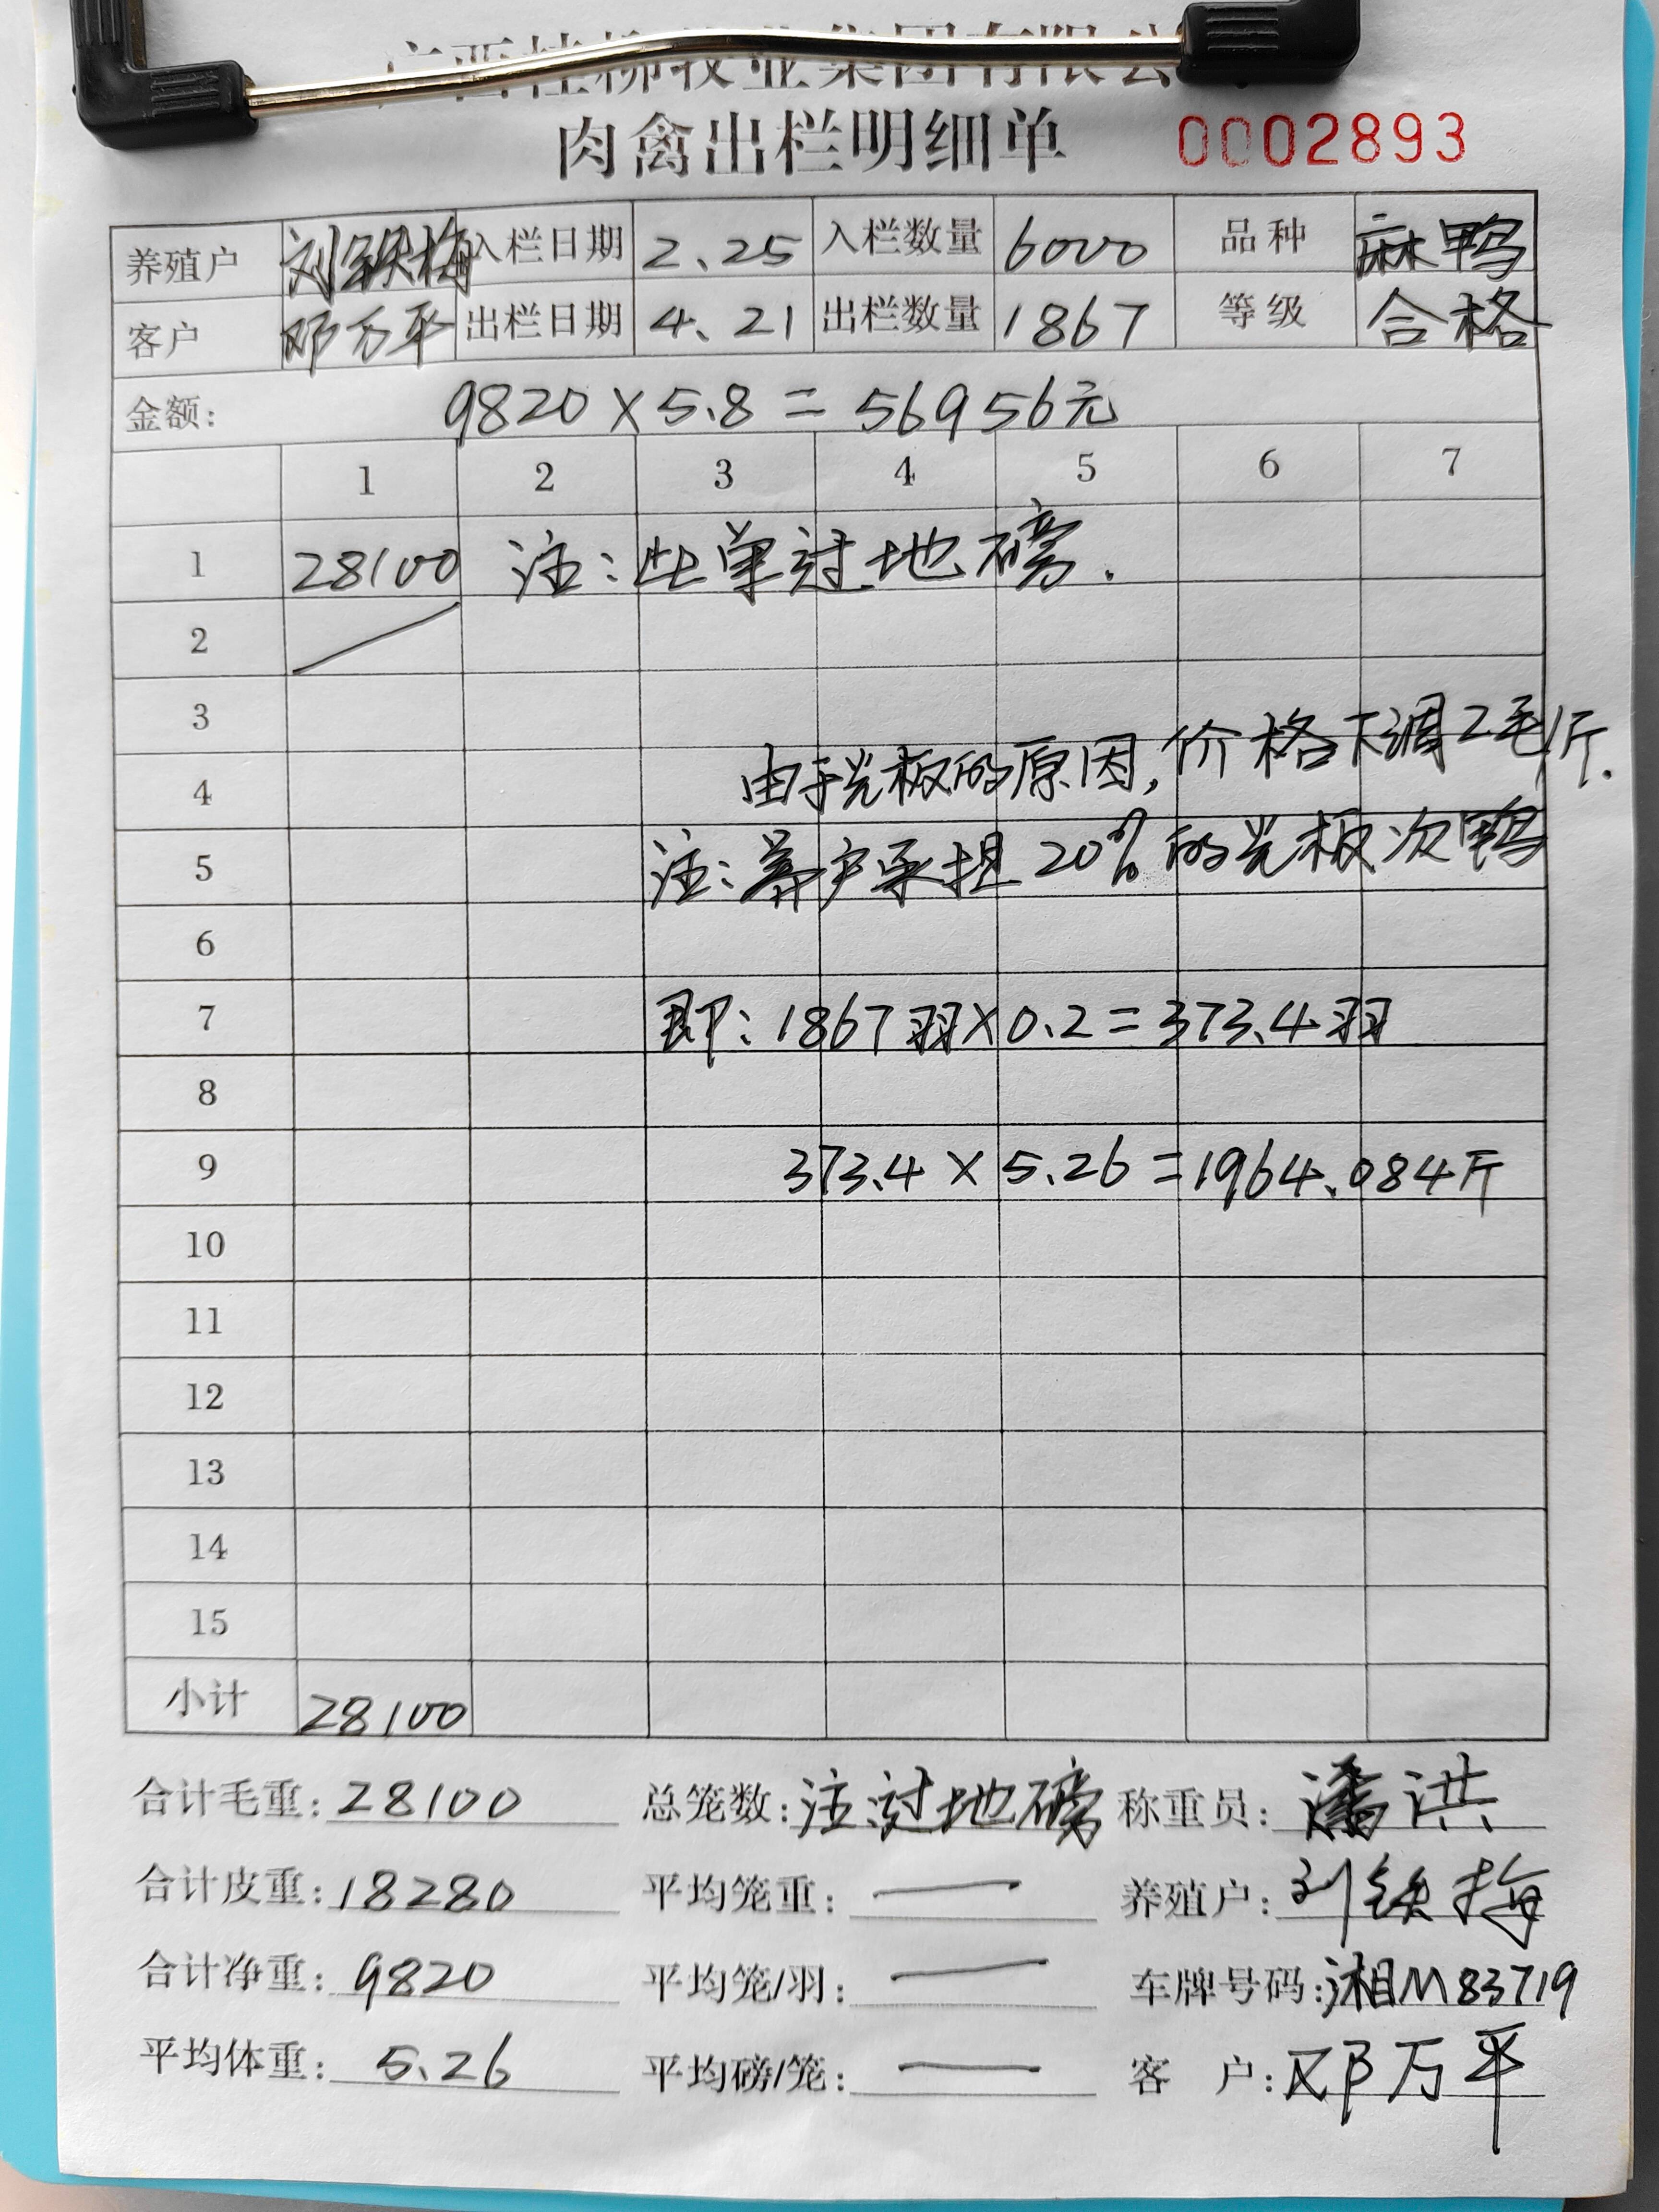 广西桂柳牧业集团有限公
肉禽出栏明细单 0002893
养殖户 刘铁梅 入栏日期 2.25 入栏数量 6000 品种 麻鸭
客户 邓万平 出栏日期 4.21 出栏数量 1867 等级 合格
金额: 9820×5.8=56956元
1 2 3 4 5 6 7
1 28100 注:此单过地磅.
2
3
由于光板的原因,价格下调2毛/斤.
4
5 注:养户承担20%的光板次鸭
6
7 即:1867羽×0.2=373.4羽
8
9 373.4×5.26=1964.084斤
10
11
12
13
14
15
小计 28100
合计毛重:28100 总笼数:注:过地磅 称重员:潘洪
合计皮重:18280 平均笼重:— 养殖户:刘铁梅
合计净重:9820 平均笼/羽:— 车牌号码:湘M83719
平均体重:5.26 平均磅/笼:— 客户:邓万平